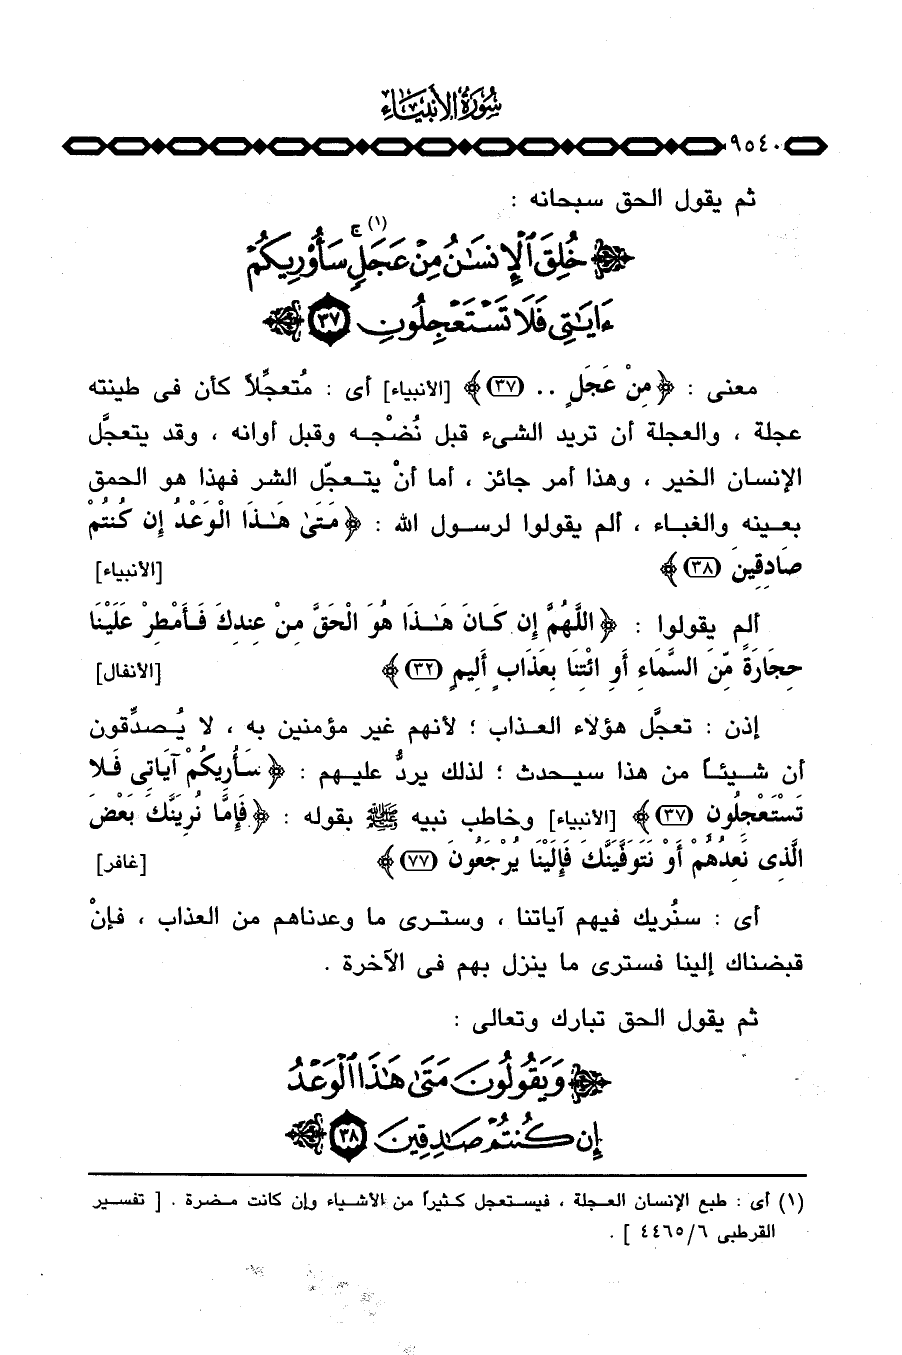 سُورَةُ الأَنبيَاء
٩٥٤٠
ثم يقول الحق سبحانه :
﴿ خُلِقَ ٱلْإِنسَٰنُ مِنْ عَجَلٍ ۚ (١) سَأُو۟رِيكُمْ
ءَايَٰتِى فَلَا تَسْتَعْجِلُونِ ٣٧ ﴾
معنى : ﴿ مِنْ عَجَلٍ .. (٣٧) ﴾ [الأنبياء] أى : مُتعجِّلاً كأن فى طينته
عجلة ، والعجلة أن تريد الشىء قبل نُضْجـه وقبل أوانه ، وقد يتعجَّل
الإنسان الخير ، وهذا أمر جائز ، أما أنْ يتـعجّل الشر فهذا هو الحمق
بعـينه والغبـاء ، ألم يقولوا لرسـول الله : ﴿ مَتَىٰ هَـٰذَا الْوَعْدُ إِن كُنتُمْ
صَادِقِينَ (٣٨) ﴾ [الأنبياء]
ألم يقولوا : ﴿ اللَّهُمَّ إِن كَـانَ هَـٰـذَا هُوَ الْحَقَّ مِنْ عِندِكَ فَـأَمْطِرْ عَلَيْنَا
حِجَارَةً مِّنَ السَّمَاءِ أَوِ ائْتِنَا بِعَذَابٍ أَلِيمٍ (٣٢) ﴾ [الأنفال]
إذن : تعجَّل هؤلاء العـذاب ؛ لأنهم غير مؤمنين به ، لا يُـصدِّقون
أن شـيئـاً من هذا سيـحدث ؛ لذلك يردُّ عليـهم : ﴿ سَأُرِيكُمْ آيَاتِى فَـلا
تَسْتَعْجِلُونِ (٣٧) ﴾ [الأنبياء] وخاطب نبيه ﷺ بقوله : ﴿ فَإِمَّا نُرِيَنَّكَ بَعْضَ
الَّذِى نَعِدُهُمْ أَوْ نَتَوَفَّيَنَّكَ فَإِلَيْنَا يُرْجَعُونَ (٧٧) ﴾ [غافر]
أى : سنُريك فيهم آياتنا ، وستـرى ما وعدناهم من العذاب ، فـإنْ
قبضناك إلينا فسترى ما ينزل بهم فى الآخرة .
ثم يقول الحق تبارك وتعالى :
﴿ وَيَقُولُونَ مَتَىٰ هَٰذَا ٱلْوَعْدُ
إِن كُنتُمْ صَٰدِقِينَ ٣٨ ﴾
(١) أى : طبع الإنسان العـجلة ، فيستعجل كثيراً من الأشياء وإن كانت مـضرة . [ تفسـير
القرطبى ٦/ ٤٤٦٥ ] .